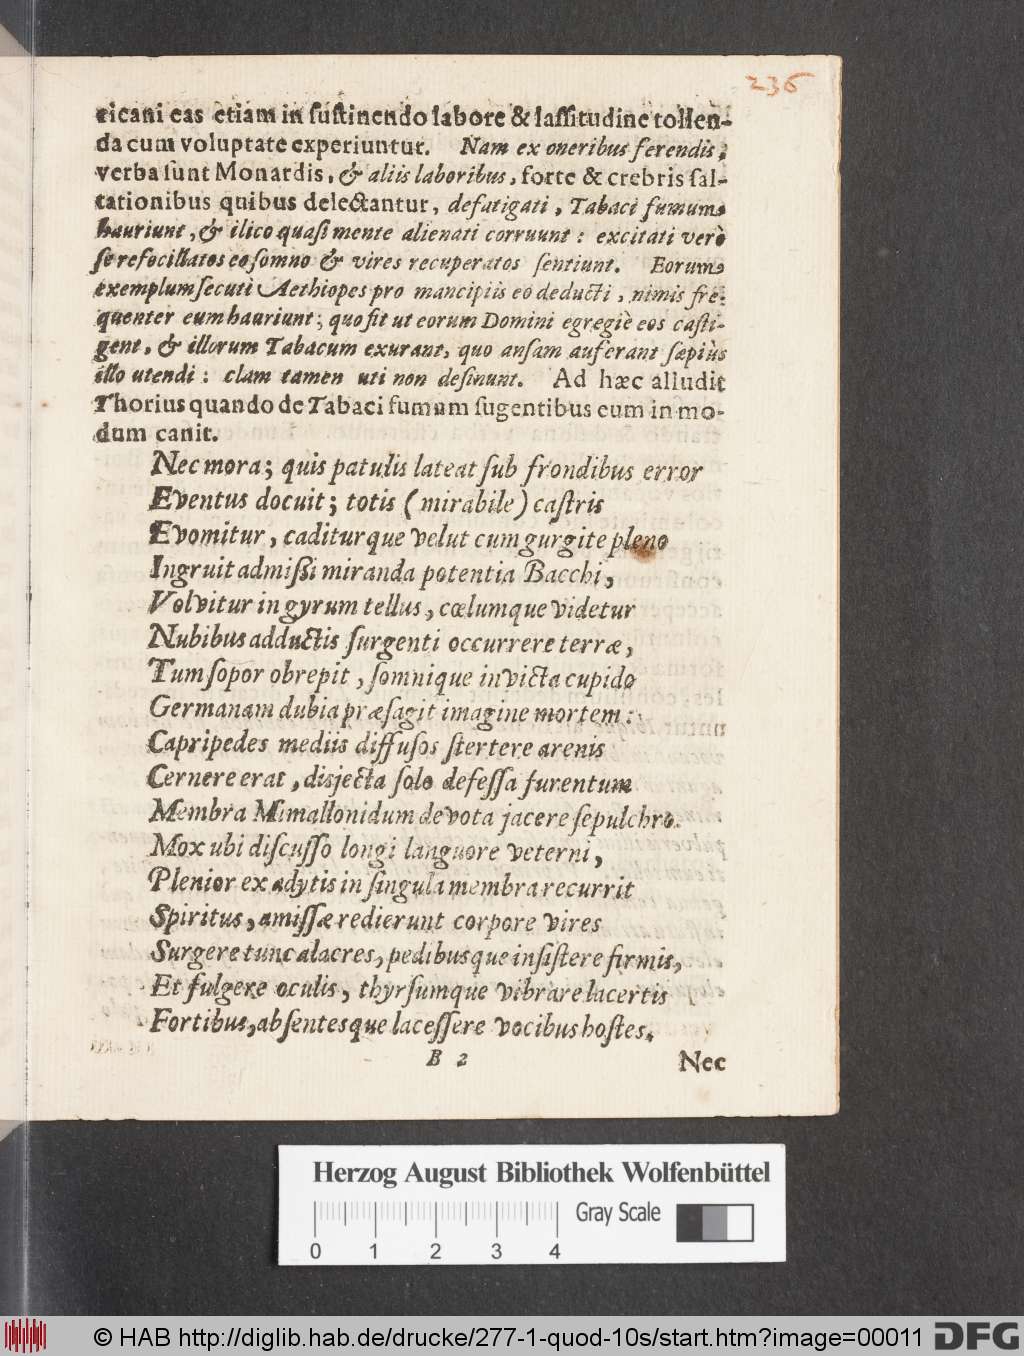 236
ricani eas etiam in ſuſtinendo labore & laſſitudine tollen-
da cum voluptate experiuntur. Nam ex oneribus ferendis,
verba ſunt Monardis, & aliis laboribus, forte & crebris ſal-
tationibus quibus delectantur, defatigati, Tabaci fumum
hauriunt, & ilico quaſi mente alienati corruunt : excitati verò
ſe refocillatos eo ſomno & vires recuperatos ſentiunt. Eorum
exemplum ſecuti Aethiopes pro mancipiis eò deducti, nimis fre-
quenter eum hauriunt; quo fit ut eorum Domini egregiè eos caſti-
gent, & illorum Tabacum exurant, quo anſam auferant ſæpiùs
illo utendi : clam tamen uti non deſinunt. Ad hæc alludit
Thorius quando de Tabaci fumum ſugentibus eum in mo-
dum canit.
Nec mora; quis patulis lateat ſub frondibus error
Eventus docuit; totis (mirabile) caſtris
Evomitur, caditurque velut cum gurgite pleno
Ingruit admiſſi miranda potentia Bacchi,
Volvitur in gyrum tellus, cœlumque videtur
Nubibus adductis ſurgenti occurrere terræ,
Tum ſopor obrepit, ſomnique invicta cupido
Germanam dubia præſagit imagine mortem :
Capripedes mediis diffuſos ſtertere arenis
Cernere erat, disjecta ſolo defeſſa furentum
Membra Mimallonidum devota jacere ſepulchro.
Mox ubi diſcuſſo longi languore veterni,
Plenior ex adytis in ſingula membra recurrit
Spiritus, amiſſæ redierunt corpore vires
Surgere tunc alacres, pedibusque inſiſtere firmis,
Et fulgere oculis, thyrſumque vibrare lacertis
Fortibus, abſentesque laceſſere vocibus hoſtes.
B 2 Nec
Herzog August Bibliothek Wolfenbüttel
Gray Scale
0 1 2 3 4
© HAB http://diglib.hab.de/drucke/277-1-quod-10s/start.htm?image=00011 DFG